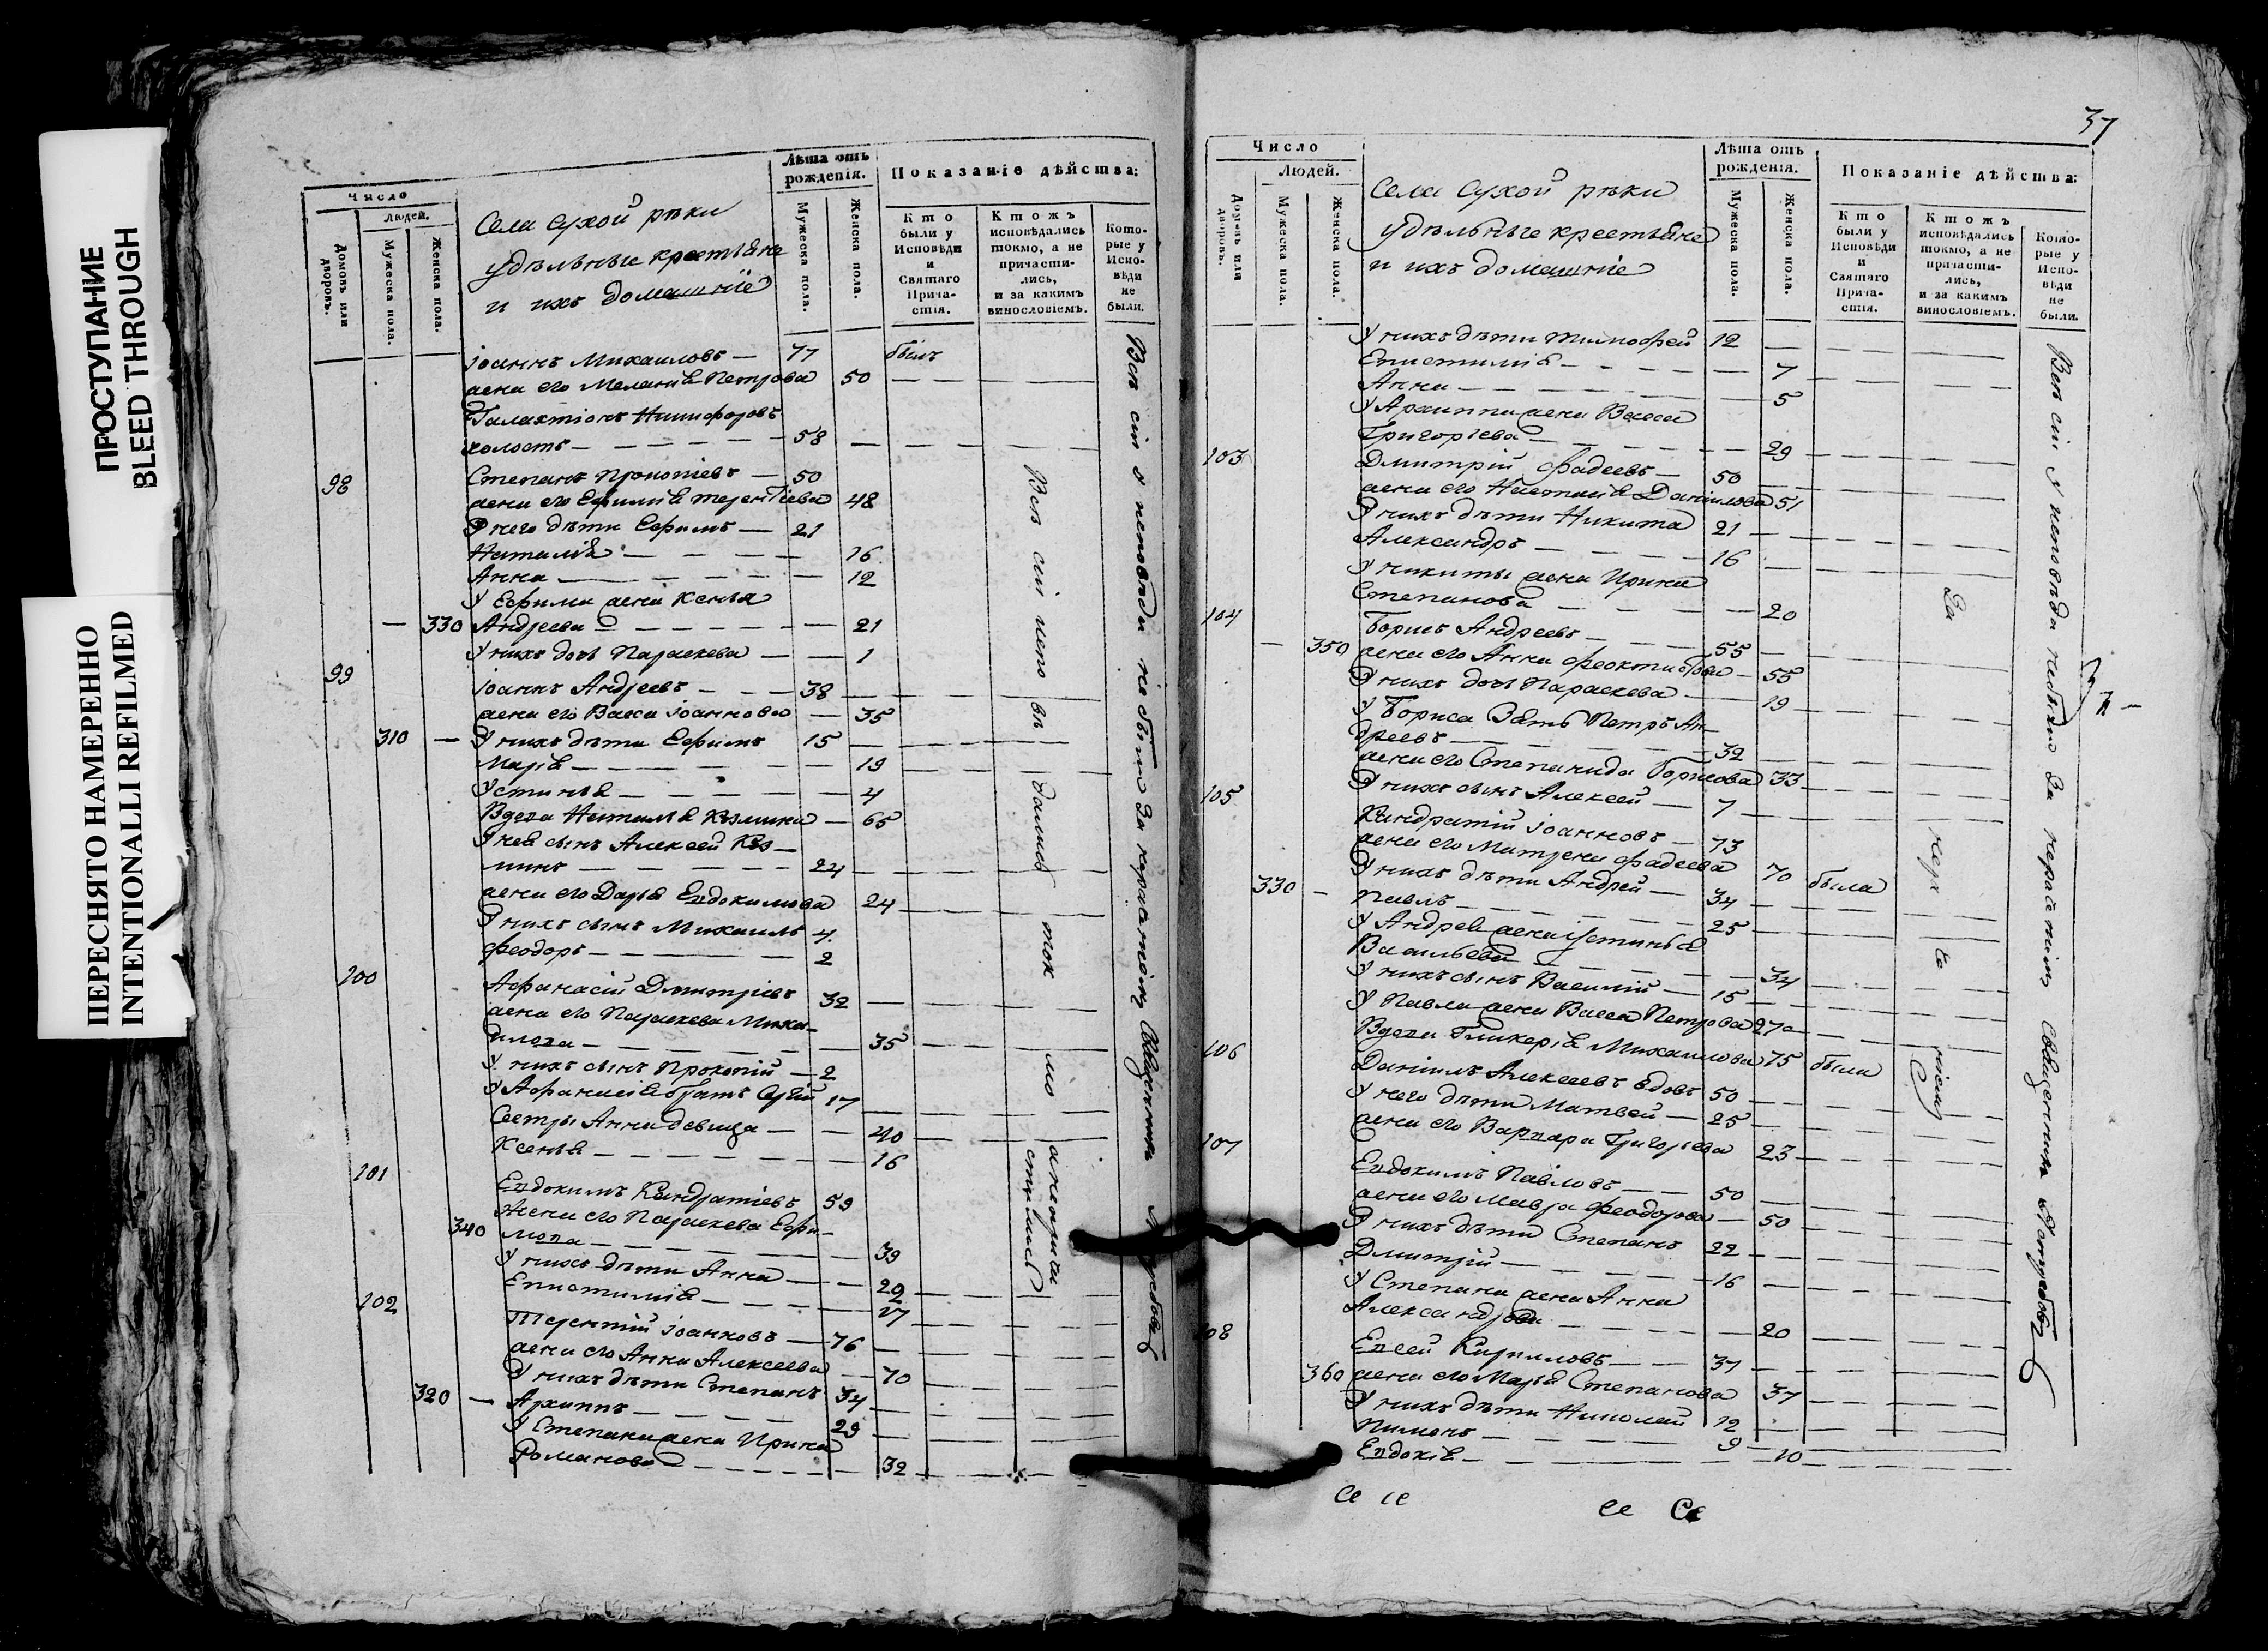 ПРОСТУПАНИЕ
BLEED THROUGH
ПЕРЕСНЯТО НАМЕРЕННО
INTENTIONALLI REFILMED
Число
Людей.
Домовъ или дворовъ.
Мужеска пола.
Женска пола.
Села Сухой рѣки
удѣльные крестьяне
и ихъ домашніе
Лѣта отъ рожденія.
Мужеска пола.
Женска пола.
Показаніе дѣйства:
Кто были у Исповѣди и Святаго Причастія.
Ктожъ исповѣдались токмо, а не причастились, и за какимъ винословіемъ.
Которые у Исповѣди не были.
Іоаннъ Михаиловъ — 77 былъ
жена его Меланія Петрова 50
Галактіонъ Никифоровъ
холостъ — 58
98 Степанъ Прокопіевъ — 50
жена его Ефимія Терентіева 48
У него дѣти Ефимъ — 21
Наталія — 16
Анна — 12
У Ефима жена Ксенья
— 330 Андреева — 21
У нихъ дочь Параскева — 1
99 Іоаннъ Андреевъ — 38
жена его Васса Іоаннова — 35
310 — У нихъ дѣти Ефимъ 15
Марія — 19
Устинья — 4
Вдова Наталья Козмина — 65
У нея сынъ Алексей Коз-
минъ — 24
жена его Дарья Евдокимова 24
У нихъ сынъ Михаилъ 4
Феодоръ — 2
100 Афанасій Дмитріевъ 32
жена его Параскева Миха-
илова — 35
У нихъ сынъ Прокопій — 2
У Афанасія братъ Сергій 17
Сестры Анна девица — 40
Ксенья — 16
101 Евдокимъ Кандратіевъ 59
Жена его Параскева Ефи-
340 мова — 39
У нихъ дѣти Анна — 29
Епистимія — 17
102 Терентій Іоанновъ — 76
жена его Анна Алексеева — 70
У нихъ дѣти Степанъ 34
320 — Архиппъ — 29
У Степана жена Ирина
Романова — 32
Всѣ сіи исповѣдались токмо а непричастились
Всѣ сіи у исповѣди не были за нераченіемъ Священникъ
37
Число
Людей.
Домовъ или дворовъ.
Мужеска пола.
Женска пола.
Села Сухой рѣки
удѣльные крестьяне
и ихъ домашніе
Лѣта отъ рожденія.
Мужеска пола.
Женска пола.
Показаніе дѣйства:
Кто были у Исповѣди и Святаго Причастія.
Ктожъ исповѣдались токмо, а не причастились, и за какимъ винословіемъ.
Которые у Исповѣди не были.
У нихъ дѣти Тимофей 12
Епистимія — 7
Анна — 5
У Архиппа жена Васса
Григорьева — 29
103 Дмитрій Фадеевъ — 50
жена его Настасья Даніилова 51
У нихъ дѣти Никита 21
Александръ — 16
У Никиты жена Ирина
Степанова — 20
104 Борисъ Андреевъ — 55
— 350 жена его Анна Феоктистова — 55
У нихъ дочь Параскева — 19
У Бориса Зять Петръ Ан-
дреевъ — 32
жена его Степанида Борисова 33
У нихъ сынъ Алексей — 7
105 Кандратій Іоанновъ — 73
жена его Матрена Фадеева 70 была
У нихъ дѣти Андрей — 34
330 — Павлъ — 25
У Андрея жена Устинья
Васильева — 34
У нихъ сынъ Василій — 15
У Павла жена Васса Петрова 27
Вдова Гликерія Михаилова 75 была
106 Даніилъ Алексеевъ вдовъ 50
У него дѣти Матвей — 25
жена его Варвара Григорьева 23
107 Евдокимъ Павловъ — 50
жена его Мавра Феодорова — 50
У нихъ дѣти Степанъ 22
Дмитрій — 16
У Степана жена Анна
Александрова — 20
108 Евсей Кириловъ — 37
360 жена его Марья Степанова 37
У нихъ дѣти Николай 12
Пименъ — 9
Евдокія — 10
За
Всѣ сіи у исповѣди небыли за нераченіемъ Священникъ